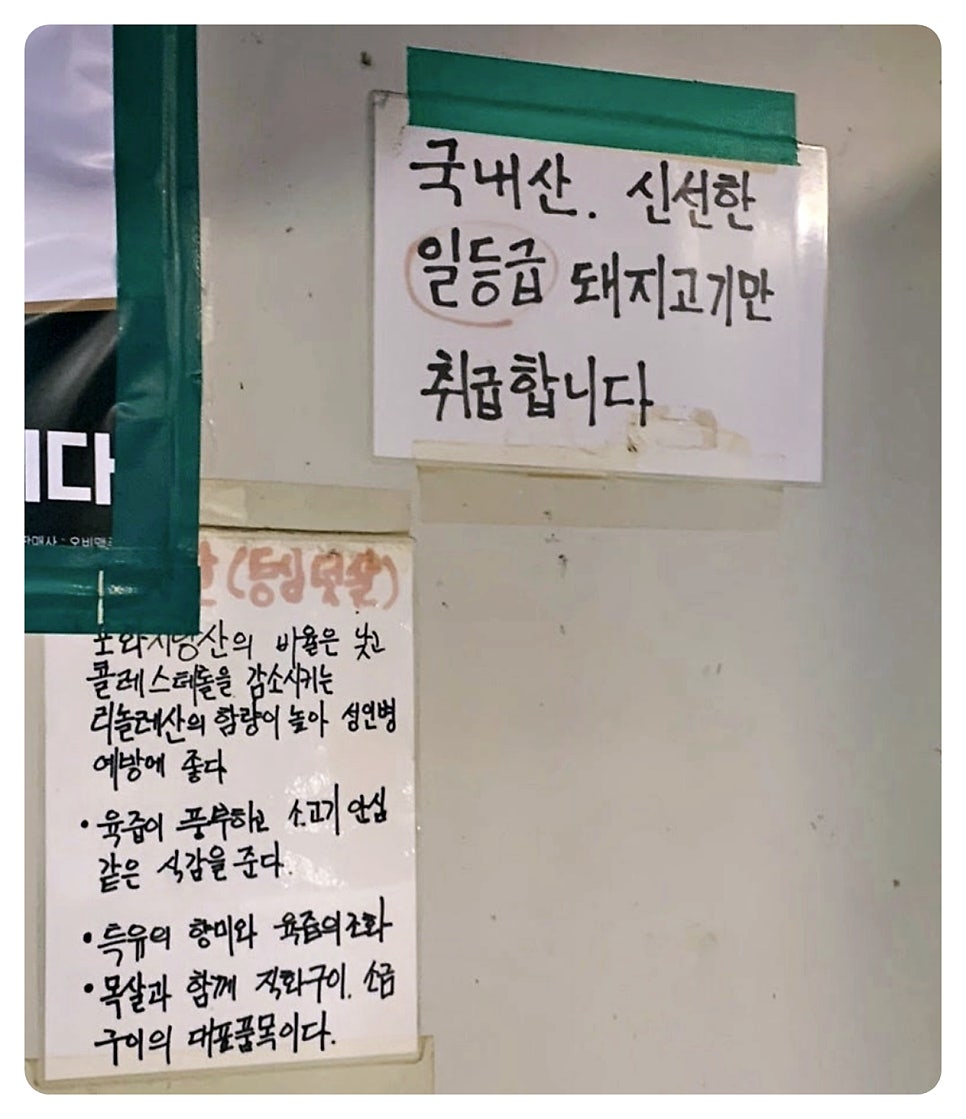 국내산. 신선한
일등급 돼지고기만
취급합니다
니다
판매사 : 오비맥
(등심덧살)
포화지방산의 비율은 낮고
콜레스테롤을 감소시키는
리놀레산의 함량이 높아 성인병
예방에 좋다
• 육즙이 풍부하고 소고기 안심
같은 식감을 준다.
• 특유의 향미와 육즙의 조화
• 목살과 함께 직화구이. 소금
구이의 대표품목이다.